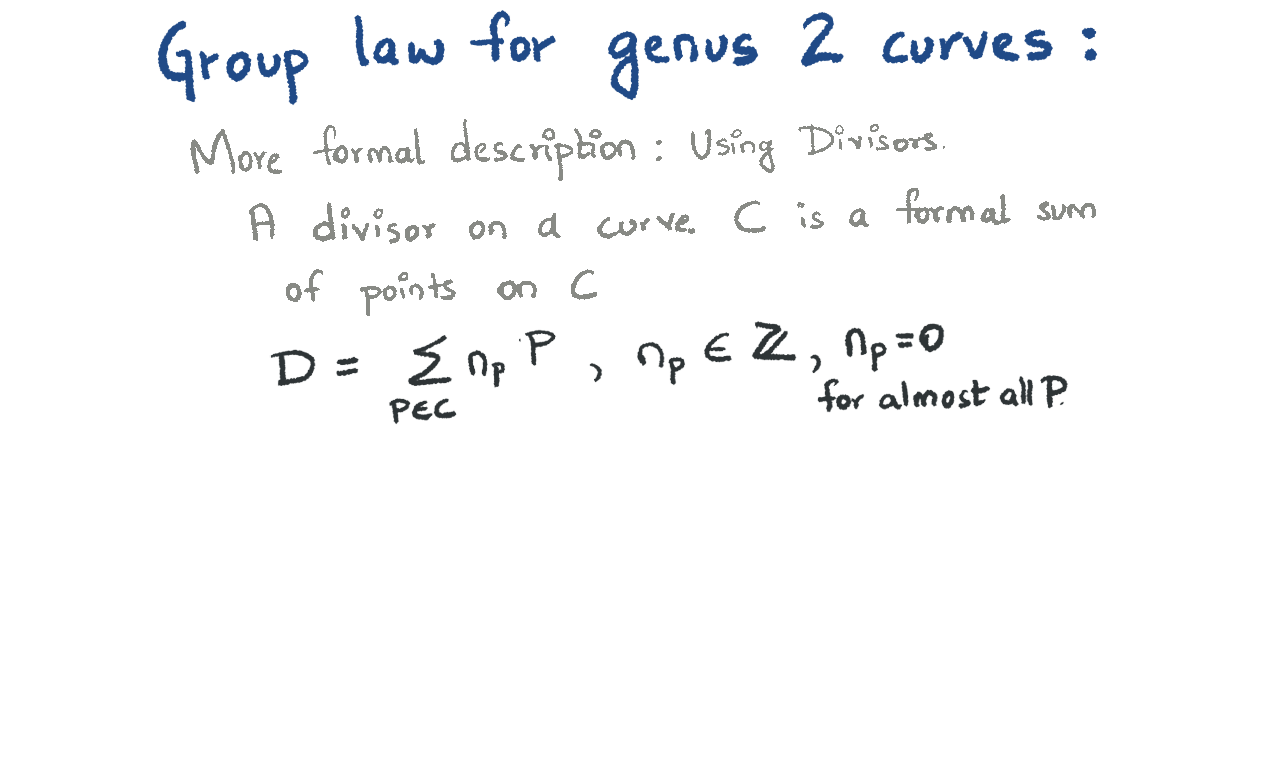 Group law for genus 2 curves :
More formal description : Using Divisors.
A divisor on a curve. C is a formal sum
of points on C
D = ∑ n_P P , n_P ∈ ℤ, n_P = 0
P∈C for almost all P.